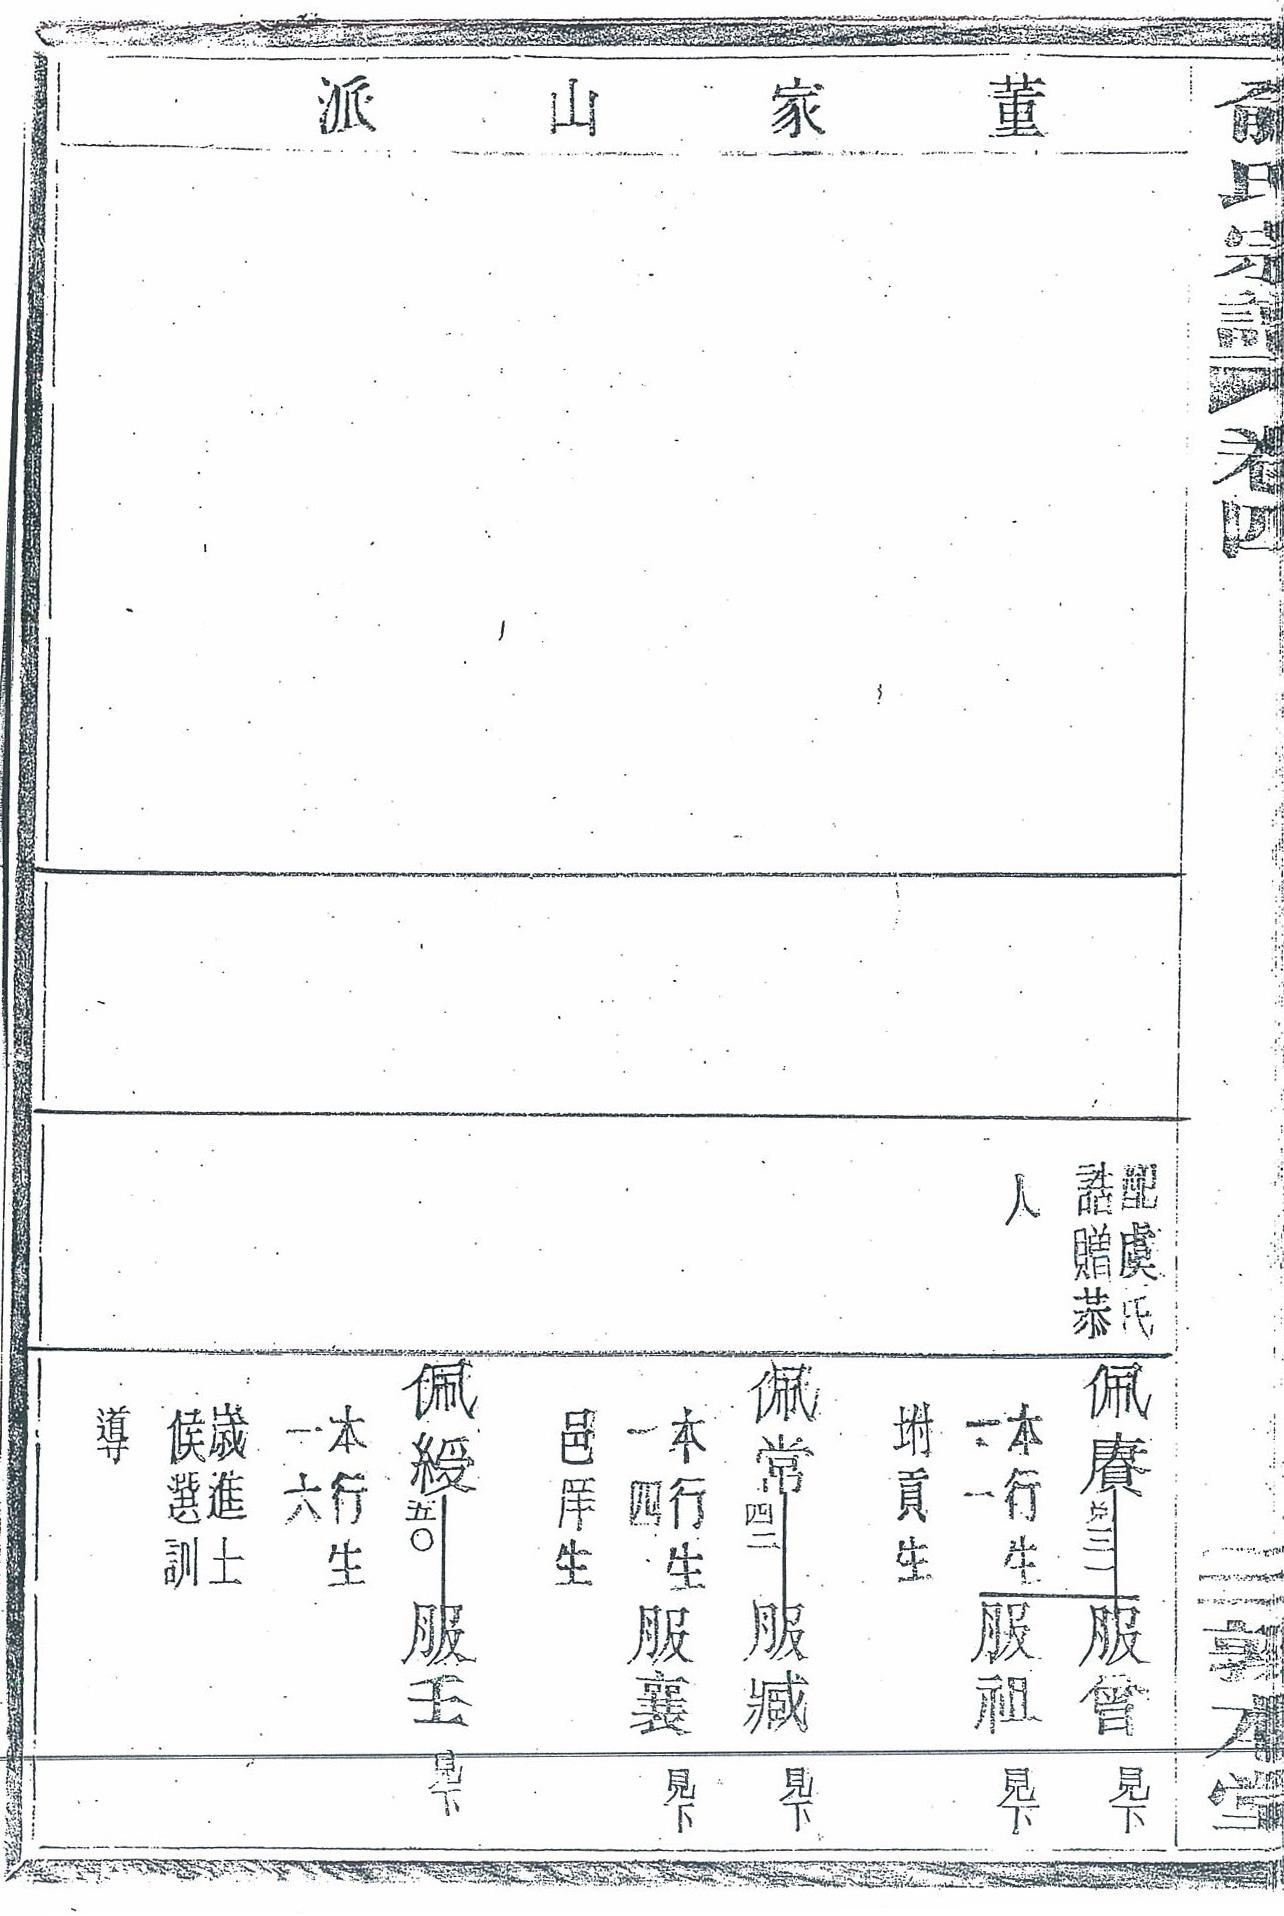 俞氏宗譜
卷四
敦本堂
董家山派
配虞氏
誥贈恭
人
佩賡
三一
本行生
一一
附貢生
服曾
見下
服祖
見下
佩常
四二
本行生
一四
邑庠生
服臧
見下
服襄
見下
佩綬
五〇
本行生
一六
歲進士
候選訓
導
服壬
見下